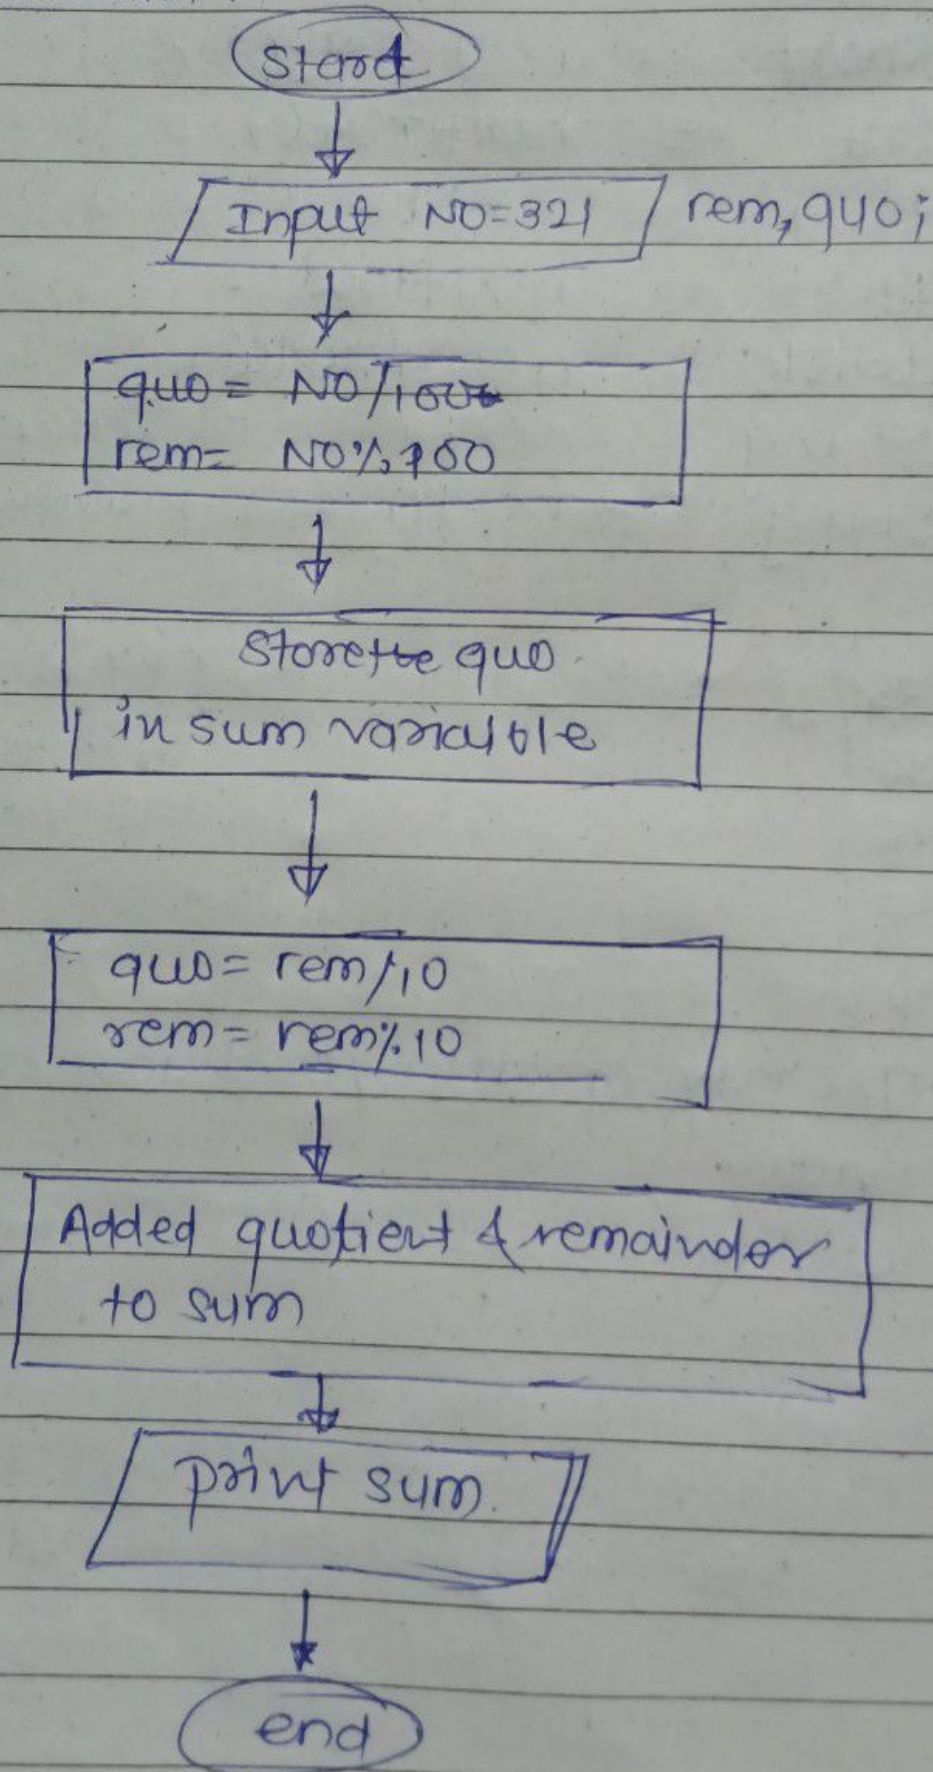 Start
Input NO=321 rem, quo;
quo = NO/100
rem= NO%100
Store the quo
in sum variable
quo= rem/10
rem= rem%10
Added quotient & remainder
to sum
print sum.
end